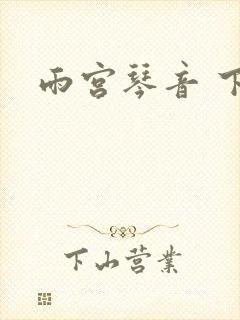 雨宫琴音 下
下山营業